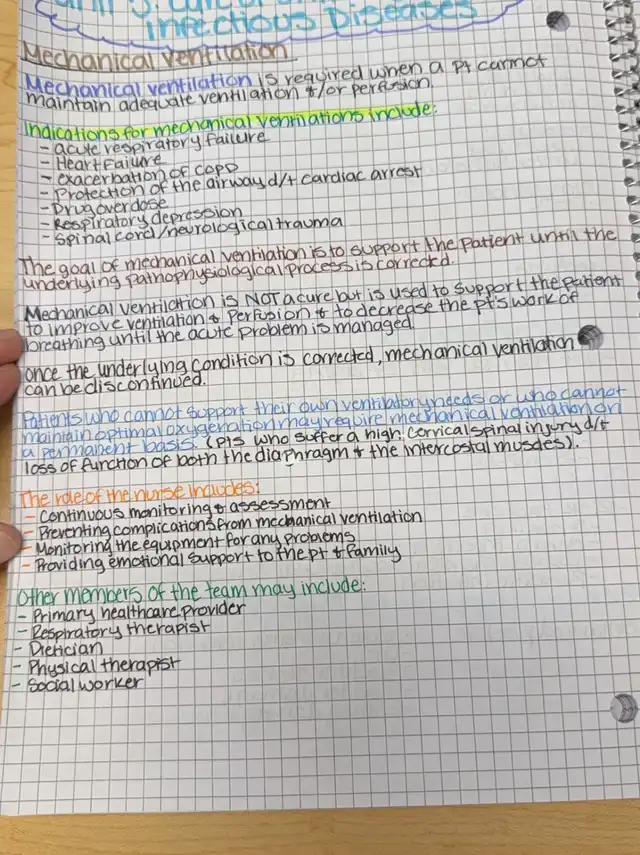 infectious Diseases
Mechanical Ventilation
Mechanical ventilation is required when a pt cannot
maintain adequate ventilation +/or perfusion.
Indications for mechanical ventilations include:
- acute respiratory failure
- Heart Failure
- exacerbation of COPD
- Protection of the airway d/t cardiac arrest
- Drug overdose
- Respiratory depression
- Spinal cord/neurological trauma
The goal of mechanical ventilation is to support the patient until the
underlying pathophysiological process is corrected.
Mechanical ventilation is NOT a cure but is used to support the patient
to improve ventilation + perfusion + to decrease the pt's work of
breathing until the acute problem is managed.
once the underlying condition is corrected, mechanical ventilation
can be discontinued.
Patients who cannot support their own ventilatory needs or who cannot
maintain optimal oxygenation may require mechanical ventilation on
a permanent basis. (pts who suffer a high cervical spinal injury d/t
loss of function of both the diaphragm + the intercostal muscles).
The role of the nurse includes:
- Continuous monitoring + assessment
- Preventing complications from mechanical ventilation
- Monitoring the equipment for any problems
- Providing emotional support to the pt + family
Other members of the team may include:
- Primary healthcare provider
- Respiratory therapist
- Dietician
- Physical therapist
- Social worker